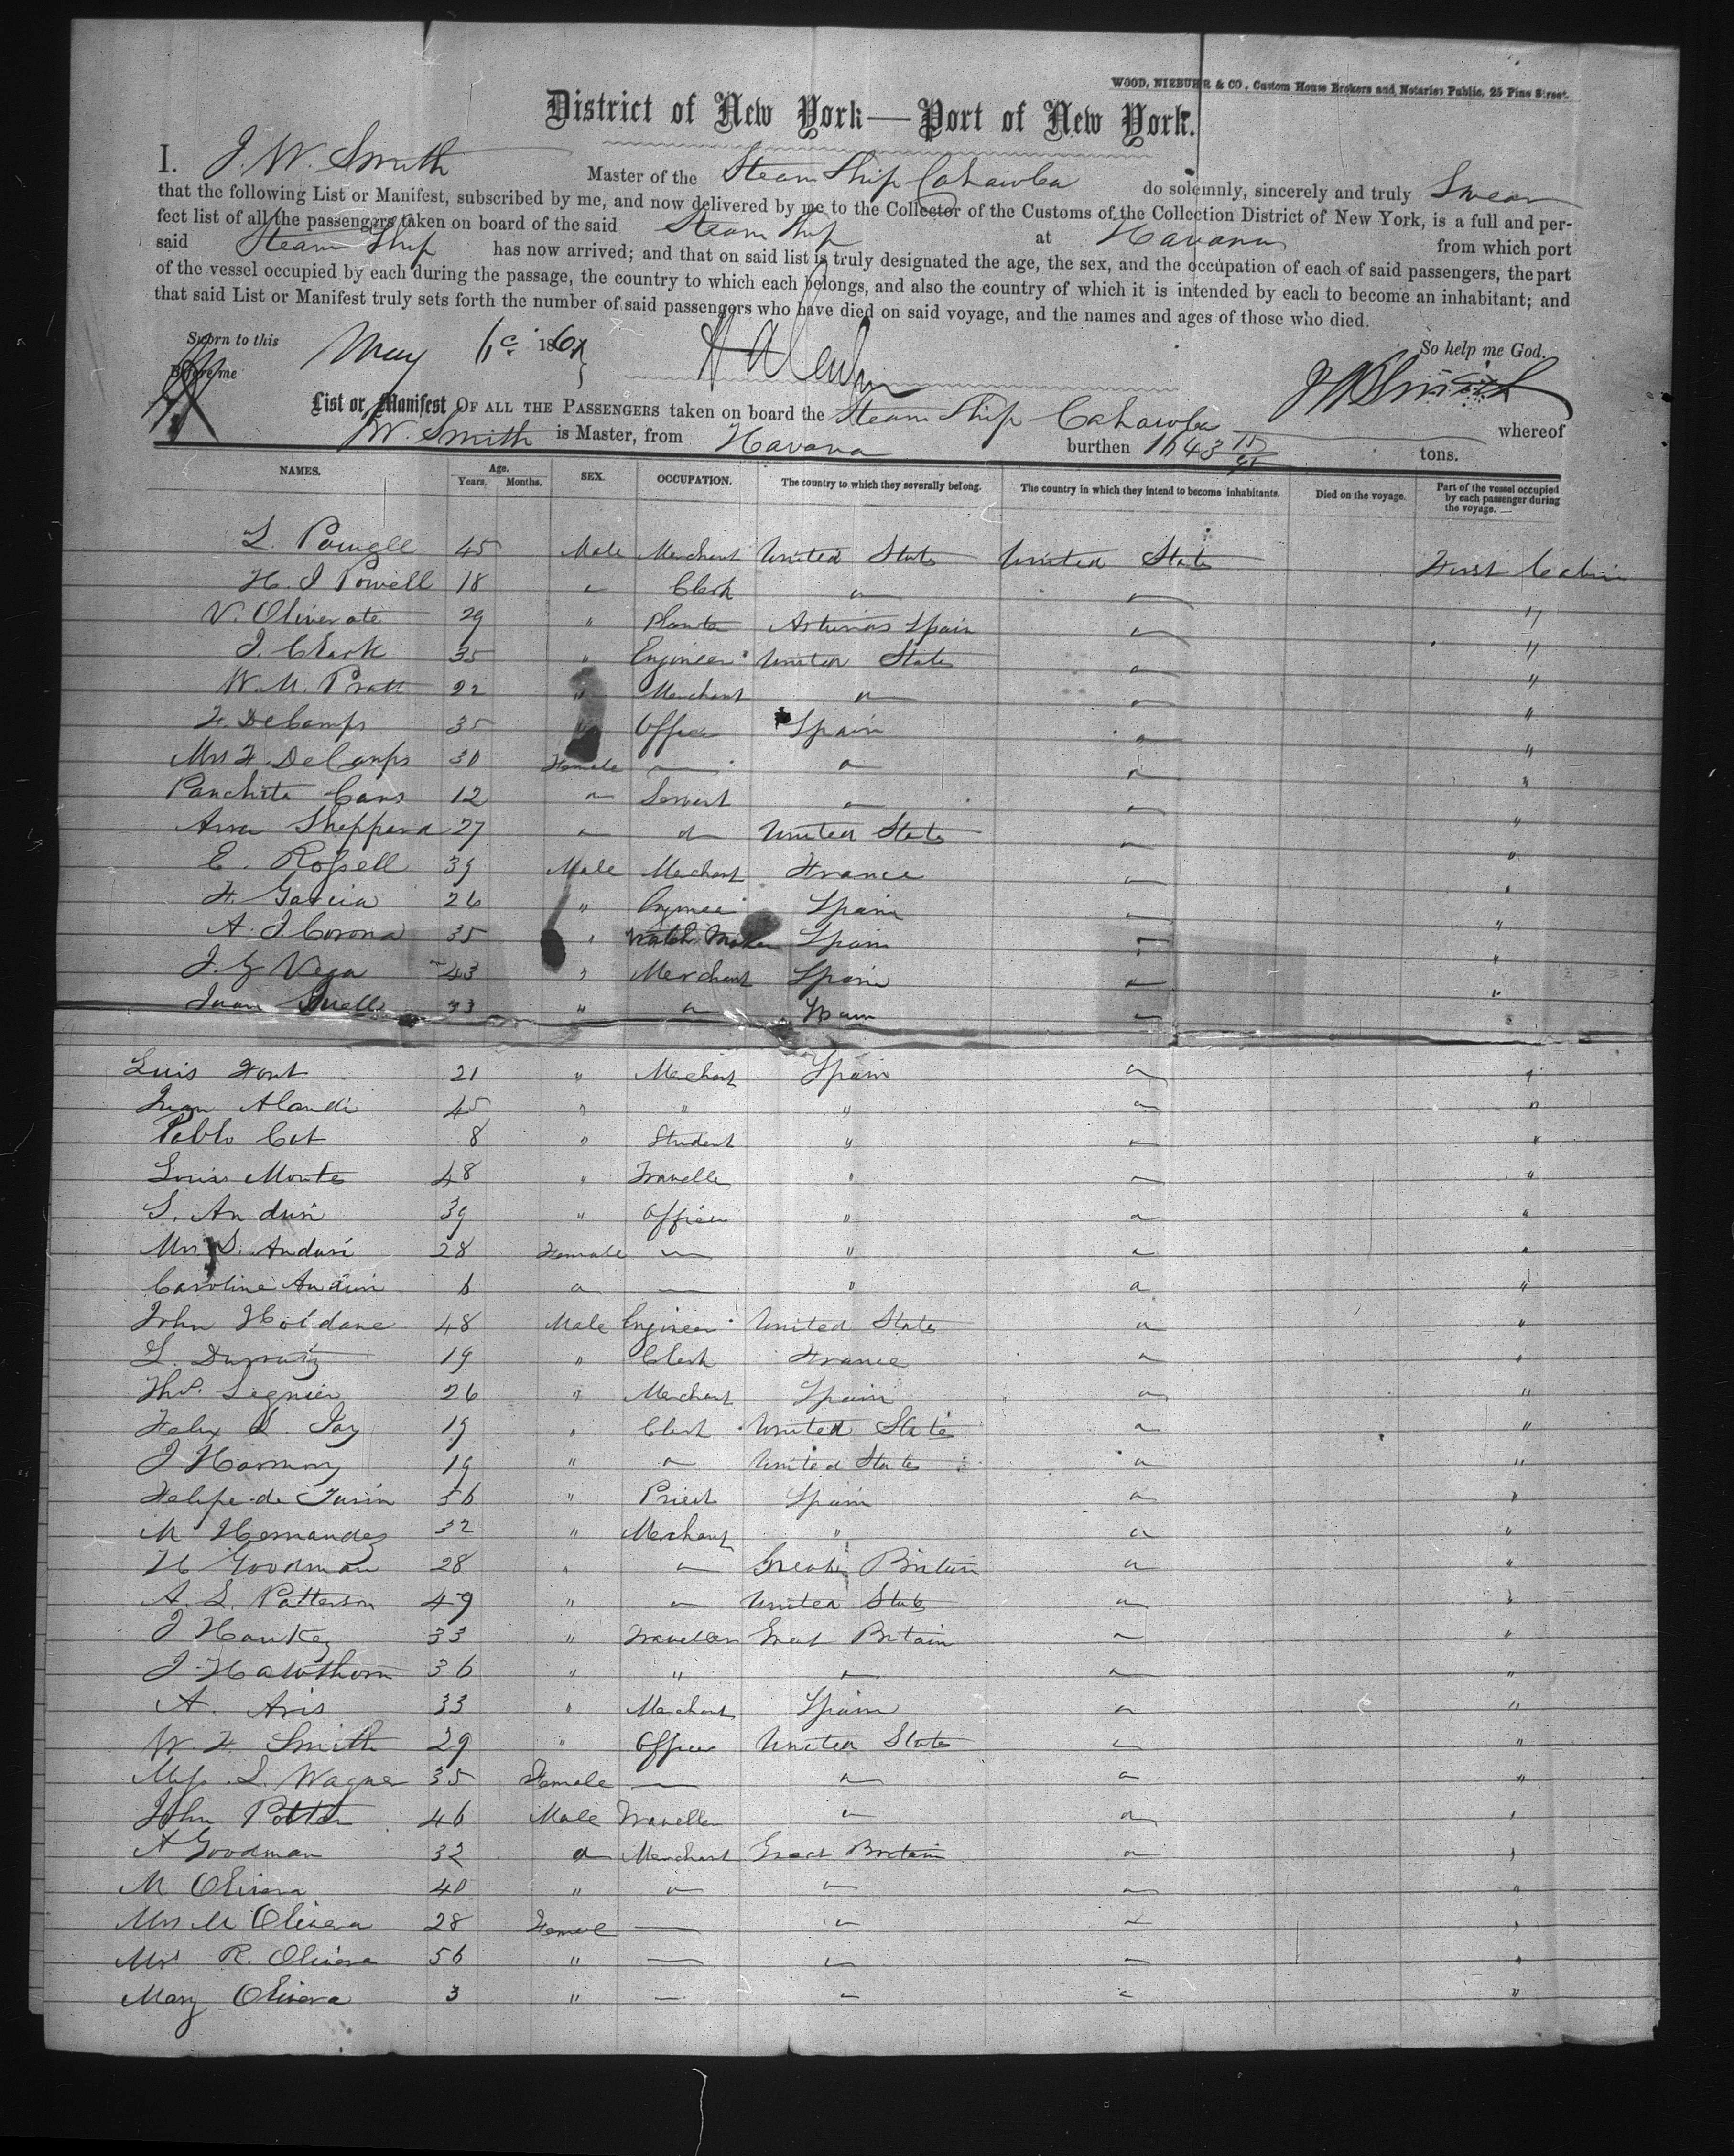 WOOD, NIEBUHR & CO., Custom House Brokers and Notaries Public, 25 Pine Street.
District of New York—Port of New York.
I. J. W. Smith Master of the Steam Ship Cahawba do solemnly, sincerely and truly Swear
that the following List or Manifest, subscribed by me, and now delivered by me to the Collector of the Customs of the Collection District of New York, is a full and per-
fect list of all the passengers taken on board of the said Steam Ship at Havana from which port
said Steam Ship has now arrived; and that on said list is truly designated the age, the sex, and the occupation of each of said passengers, the part
of the vessel occupied by each during the passage, the country to which each belongs, and also the country of which it is intended by each to become an inhabitant; and
that said List or Manifest truly sets forth the number of said passengers who have died on said voyage, and the names and ages of those who died.
Sworn to this May 186 So help me God.
Before me J W Smith
List or Manifest OF ALL THE PASSENGERS taken on board the Steam Ship Cahawba whereof
W. Smith is Master, from Havana burthen 1643 15/95 tons.
NAMES. Age. Years. Months. SEX. OCCUPATION. The country to which they severally belong. The country in which they intend to become inhabitants. Died on the voyage. Part of the vessel occupied by each passenger during the voyage.
L. Powell 45 Male Merchant United States United States First Cabin
H. J Powell 18 " Clerk " " "
V. Oliverate 29 " Planter Asturias Spain " "
J. Clark 35 " Engineer United States " "
W. M. Pratt 22 " Merchant " " "
F. DeCamps 35 " Officer Spain " "
Mrs F. DeCamps 30 Female — " " "
Panchita Cans 12 " Servant " " "
Ann Sheppard 27 " " United States " "
E. Rossell 39 Male Merchant France " "
F. Garcia 26 " Engineer Spain " "
A. J. Corona 35 " Watch Maker Spain " "
J. G Vega 43 " Merchant Spain " "
Juan 33 " " Spain "
Luis Font 21 " Merchant Spain " "
Juan Alandi 45 " " " " "
Pablo Cot 8 " Student " " "
Louis Monte 48 " Traveller " " "
S. Anduri 39 " Officer " " "
Mrs S. Anduri 28 Female — " " "
Caroline Anduri 6 " — " " "
John Holdane 48 Male Engineer United States " "
L. 19 " Clerk France " "
Thos. Segnier 26 " Merchant Spain " "
Felix L. Jay 19 " Clerk United States " "
J Harmony 19 " " United States " "
Felipe de 56 " Priest Spain " "
M Hernandez 32 " Merchant " " "
H Goodman 28 " " Great Britain " "
A. L. Patterson 49 " " United States " "
J Hankey 33 " Traveller Great Britain " "
J. Hawthorn 36 " " " " "
A. Aris 33 " Merchant Spain " "
W. F. Smith 29 " Officer United States " "
Miss L. Wagner 35 Female — " " "
John Potter 46 Male Traveller " " "
A Goodman 32 " Merchant Great Britain " "
M Olivera 40 " " " " "
Mrs M Olivera 28 Female — " " "
Mrs R. Olivera 56 " — " " "
Mary Olivera 3 " — " " "